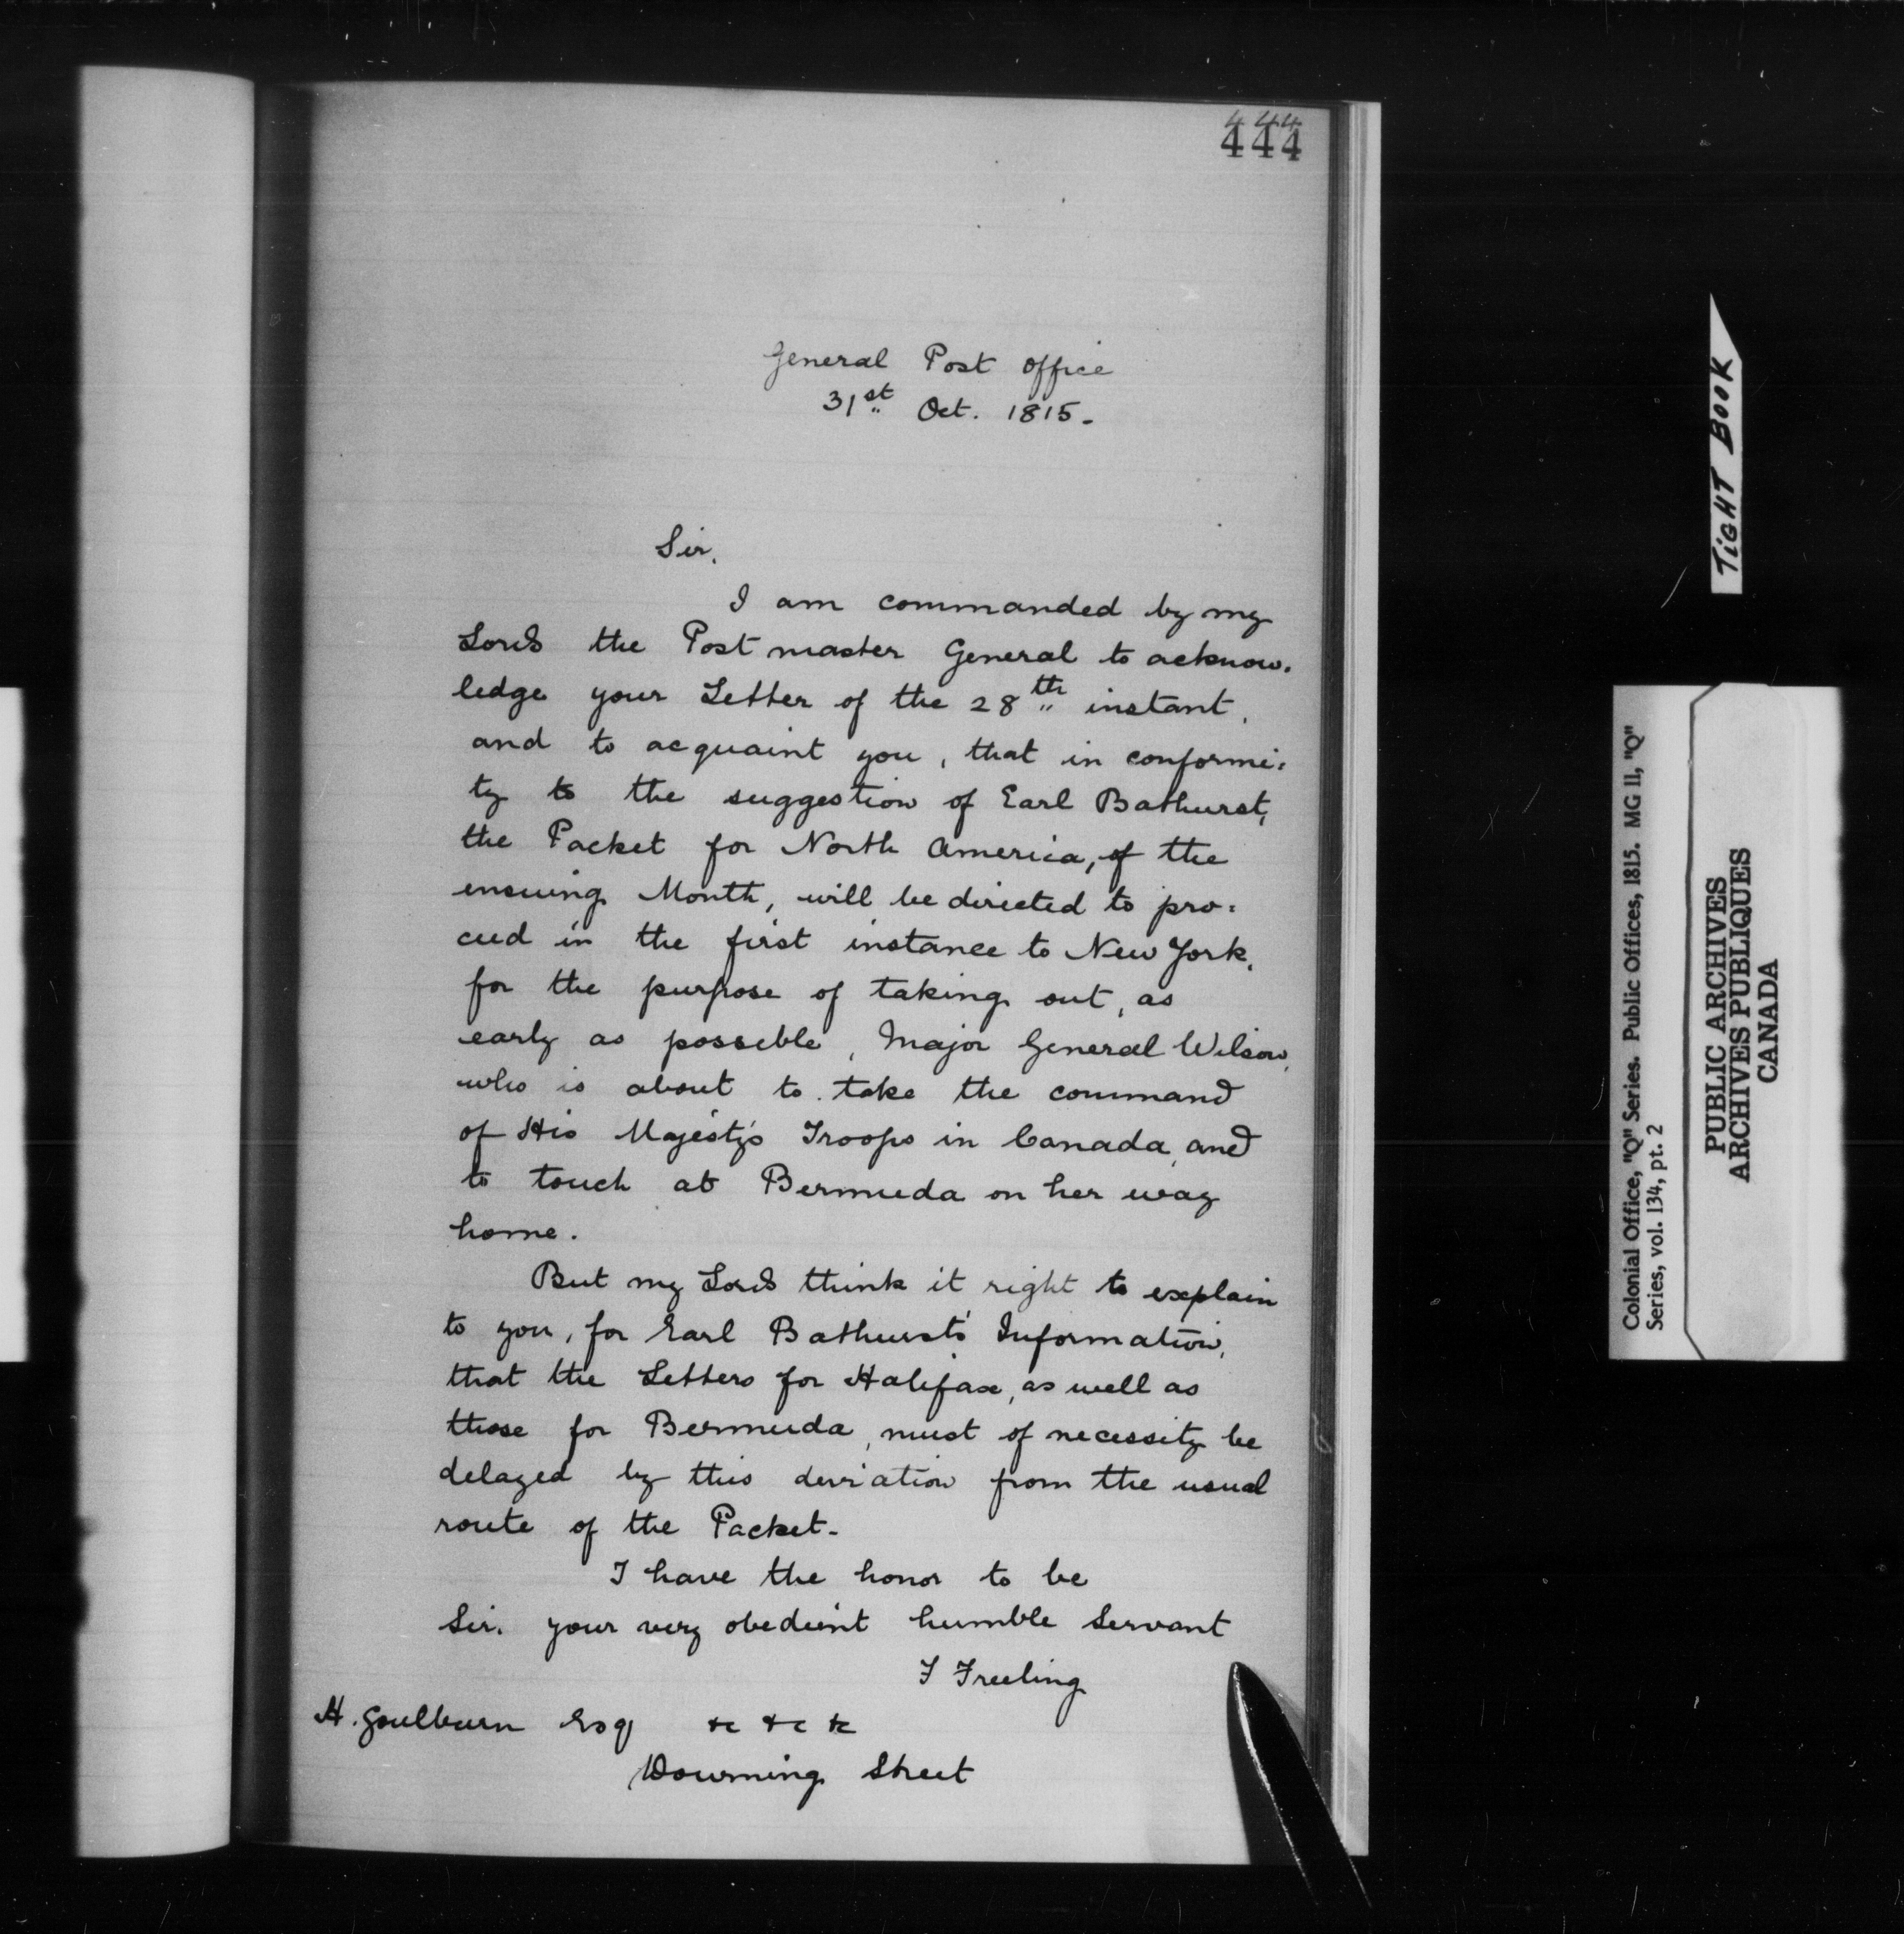 444
444
General Post Office
31st Oct. 1815.
Sir,
I am commanded by my
Lords the Post master General to acknow.
ledge your Letter of the 28th instant,
and to acquaint you, that in conformi:
ty to the suggestion of Earl Bathurst,
the Packet for North America, of the
ensuing Month, will be directed to pro:
ceed in the first instance to New York,
for the purpose of taking out, as
early as possible, Major General Wilson,
who is about to take the command
of His Majesty's Troops in Canada, and
to touch at Bermuda on her way
home.
But my Lords think it right to explain
to you, for Earl Bathurst's Information,
that the Letters for Halifax, as well as
those for Bermuda, must of necessity be
delayed by this deviation from the usual
route of the Packet.
I have the honor to be
Sir, your very obedient humble Servant
F Freeling
H. Goulburn Esq &c &c &c
Downing Street
TIGHT BOOK
Colonial Office, "Q" Series. Public Offices, 1815. MG 11, "Q"
Series, vol. 134, pt. 2
PUBLIC ARCHIVES
ARCHIVES PUBLIQUES
CANADA